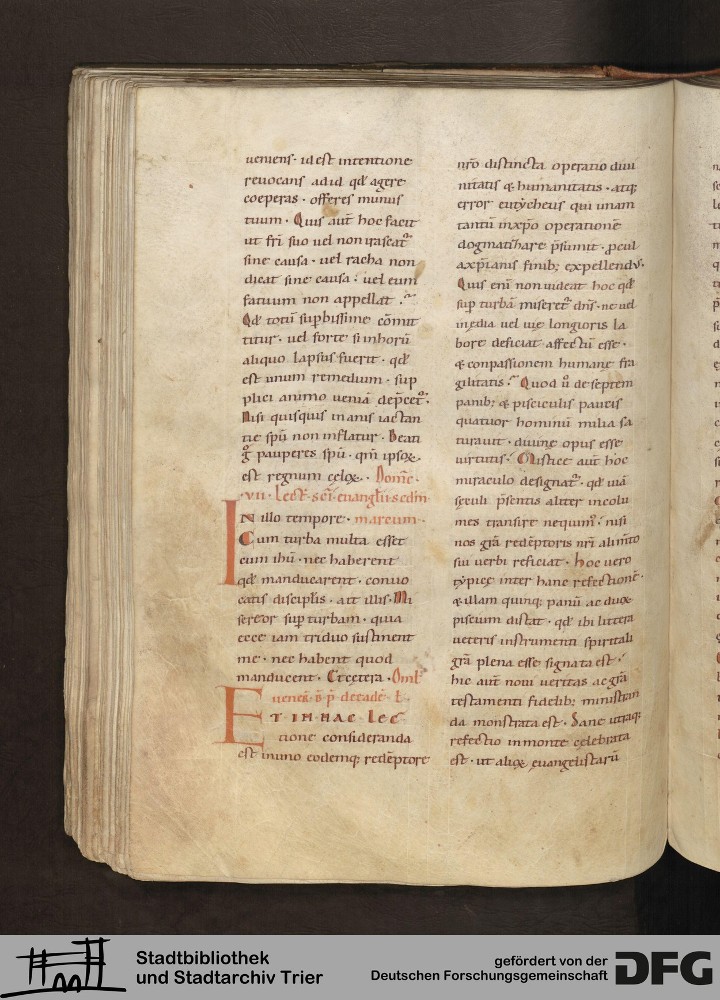 ueniens · id est intentione
reuocans ad id qđ agere
coeperas · offeres munus
tuum · Quis aut̄ hoc facit
ut fr̄i suo uel non irascat᷑
sine causa · uel racha non
dicat sine causa · uel eum
fatuum non appellat ·
Qđ totū supbissime cōmit
titur · uel forte si in horū
aliquo lapsus fuerit · qđ
est unum remedium · sup
plici animo ueniā dep̄cet᷑ ·
Nisi quisquis inanis iactan
tię spū non inflatur · Beati
g̊ pauperes spū · qm̄ ipsoꝝ
est regnum cęloꝝ · Domīc
VII · Lect̄ sc̄i euanglii · sedm
IN illo tempore · marcum ·
Cum turba multa esset
cum ihū · nec haberent
qđ manducarent · conuo
catis discipl̄is · ait illis · Mi
sereor sup turbam · quia
ecce iam triduo sustinent
me · nec habent quod
manducent · Et cetera · Oml̄
uenerˉ · b̄ · p̄ · de eadē · l̄ ·
ET IN HAC LEC
tione consideranda
est in uno eodemq; redēptore
nr̄o distincta operatio diui
nitatis & humanitatis · atq;
error eutychetis qui unam
tantū in xp̄o operationē
dogmatizare p̄sumit · ꝓcul
a xp̄ianis finib; expellendus ·
Quis enī non uideat hoc qđ
sup turbā miseret᷑ dn̄s · ne uel
inędia uel uię longioris la
bore deficiat affectū esse ·
& conpassionem humanę fra
gilitatis · Quod ū de septem
panib; & pisciculis paucis
quatuor hominū milia sa
turauit · diuinę opus esse
uirtutis · Mistice aut̄ hoc
miraculo designat᷑ · qđ uiā
sęculi p̄sentis aliter incolu
mes transire nequim᷒ · nisi
nos gr̄a redēptoris nr̄i alimto
sui uerbi reficiat · hoc uero
typicę inter hanc refectionē ·
& illam quinq; panū ac duoꝝ
piscium distat · qđ ibi littera
ueteris instrumenti spiritali
gr̄a plena esse signata est ·
hic aut̄ noui ueritas ac gr̄a
testamenti fidelib; ministran
da monstrata est · Sane utraq;
refectio in monte cęlebrata
est · ut alioꝝ euangelistarū
Stadtbibliothek
und Stadtarchiv Trier
gefördert von der
Deutschen Forschungsgemeinschaft
DFG